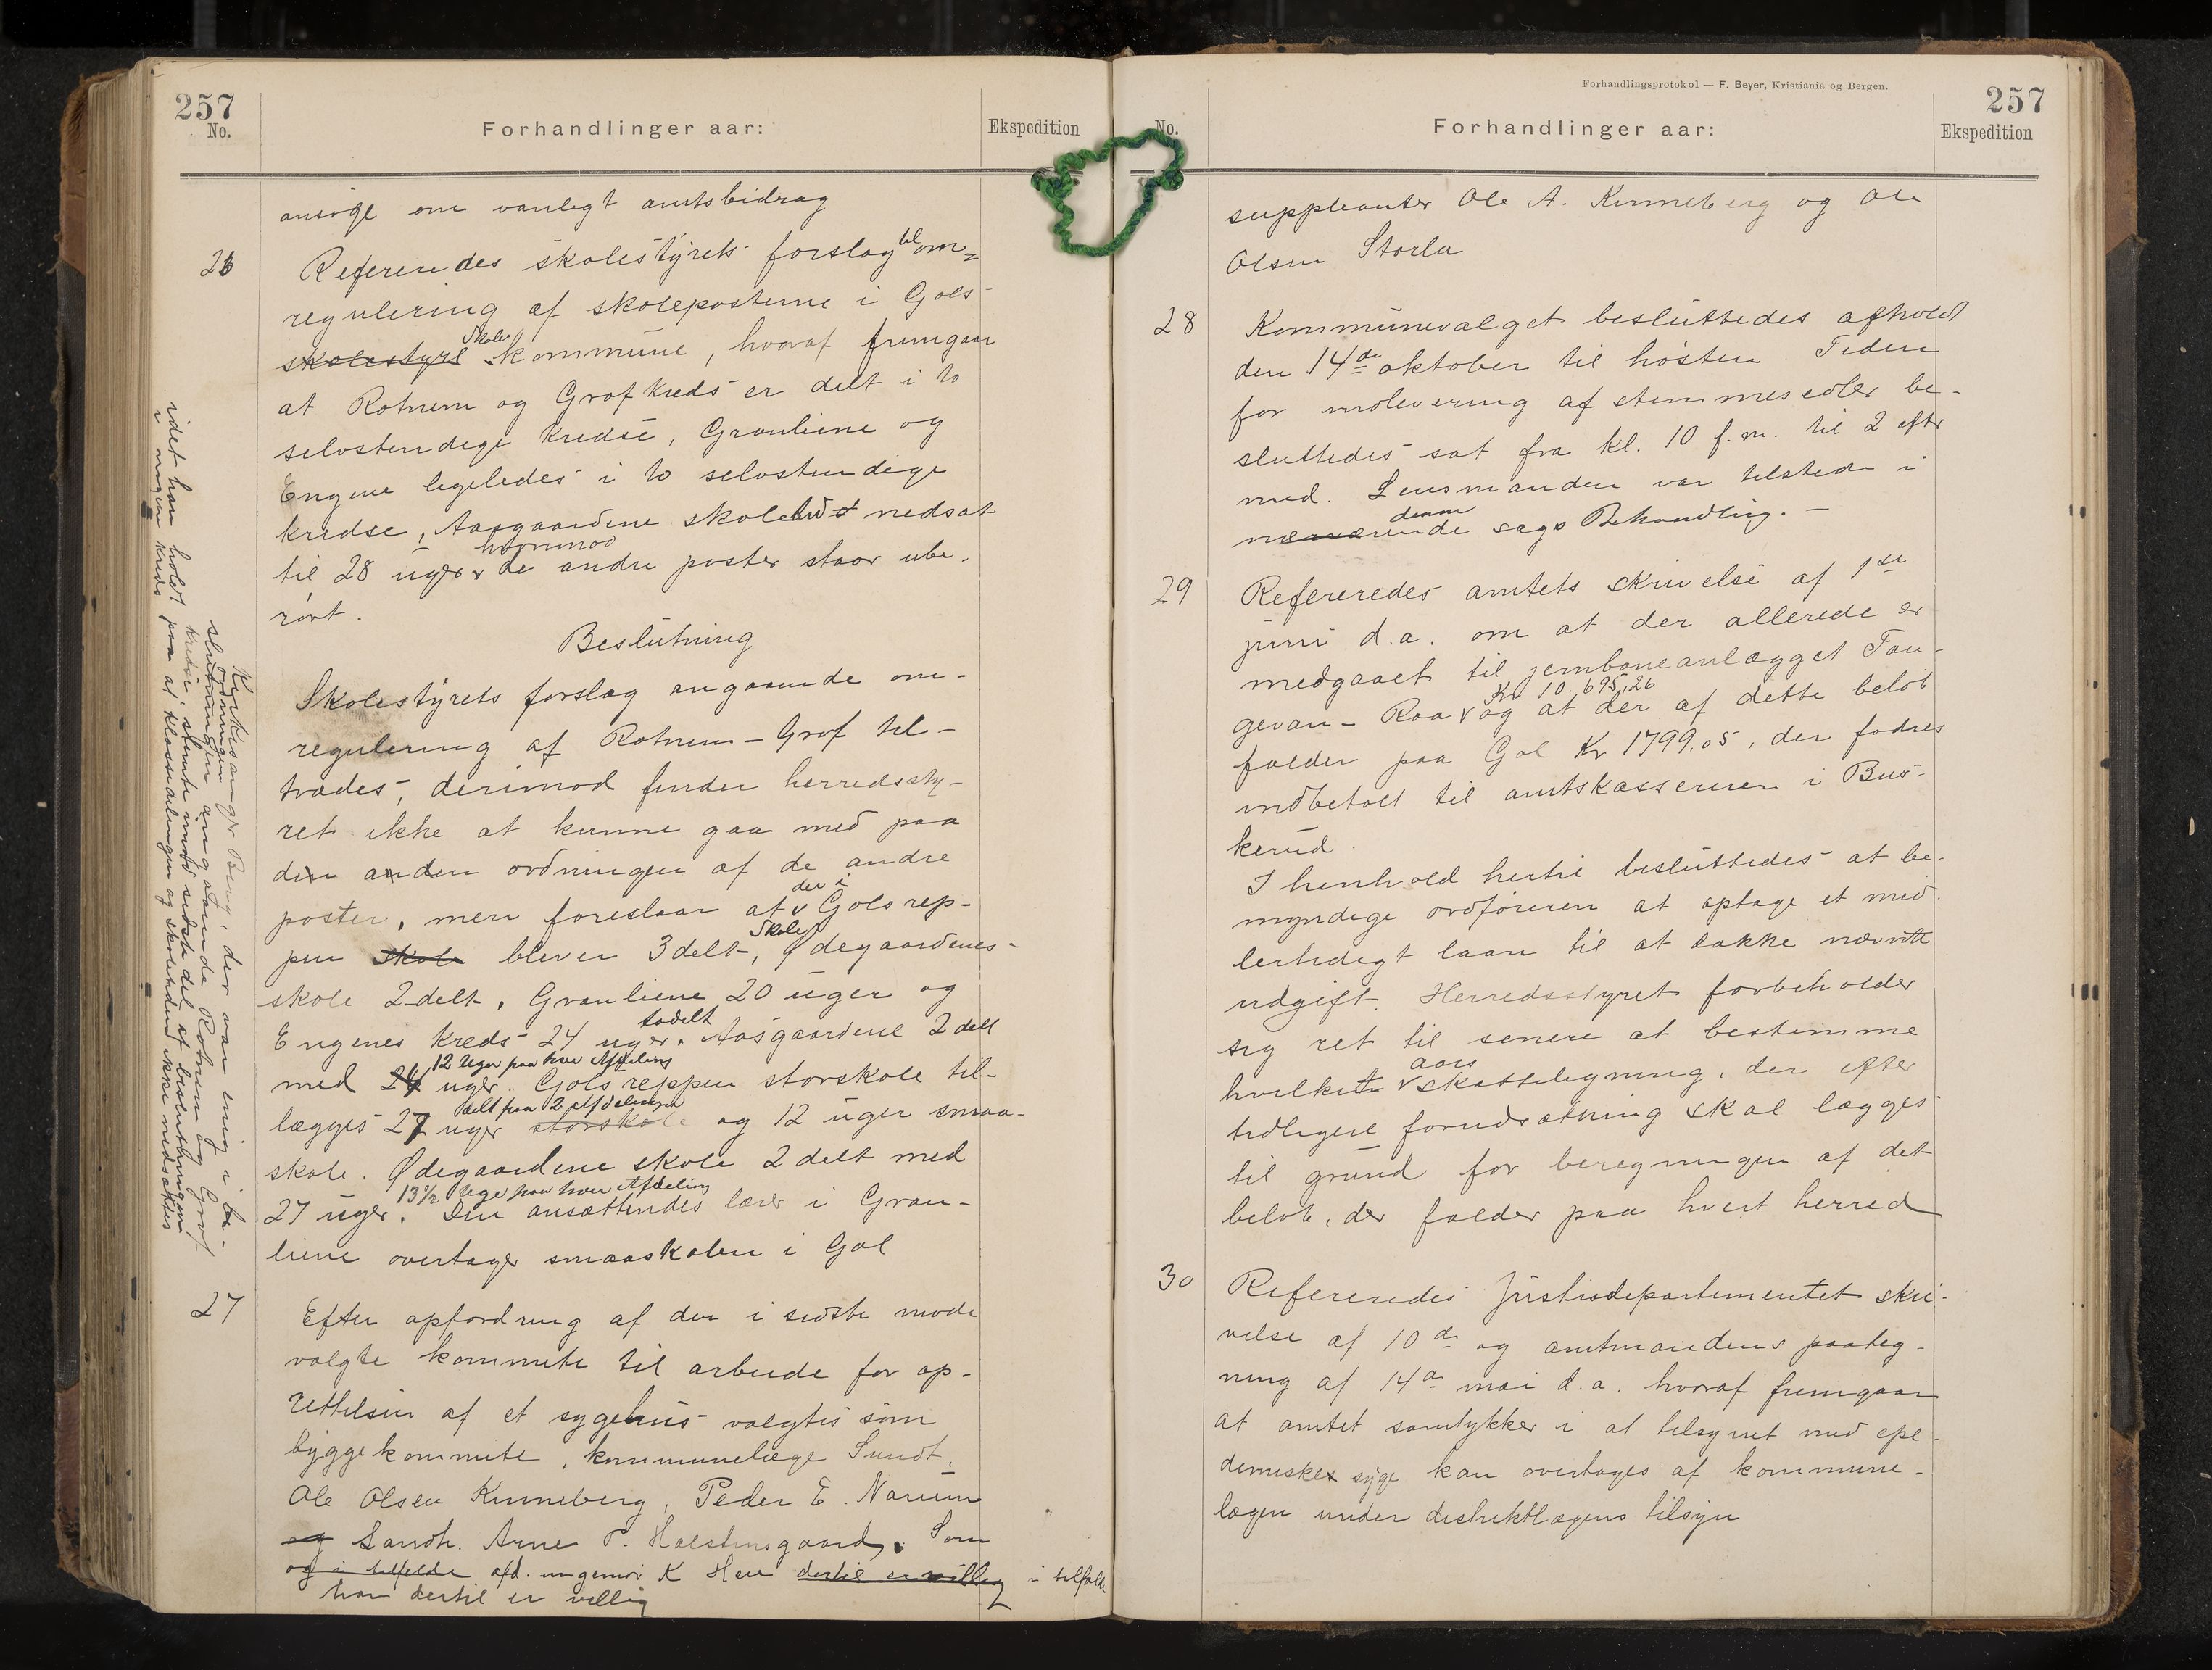 257
No.
Forhandlinger aar:
Ekspedition
ansøge om vanligt amtsbidrag
26
Refereredes skolestyrets forslag til om-
regulering af skoleposterne i Gols
skolestyre skolekommune, hvoraf fremgaar
at Rotnem og Grøf kreds er delt i to
selvstendige kredse, Granliene og
Engene ligeledes i to selvstendige
kredse, Aasgaardene skoletid nedsat
til 28 uger hvorimod de andre poster staar ube-
rørt.
Beslutning
Skolestyrets forslag angaaende om-
regulering af Rotnem - Grøf til-
trædes, derimod finder herredssty-
ret ikke at kunne gaa med paa
den anden ordningen af de andre
poster, men foreslaar at der i Gols rep-
pen skole bliver 3delt skole, Ødegaardenes
skole 2 delt. Granliene 20 uger og
Engenes kreds 24 uger todelt. Aasgaardene 2 delt
med 24 uger 12 uger paa hver Afdeling. Golsreppen storskole til-
lægges 27 uger delt paa 2 afdelinger storskole og 12 uger smaa-
skole. Ødegaardene skole 2 delt med
27 uger. 13½ uge paa hver Afdeling Den ansættendes lærer i Gran-
liene overtager smaaskolen i Gol
Kirkesanger Berg, der var enig i be-
slutningen ordningen angaaende Rotnem og Grøf
kredse, stemte imod sidste del af beslutningen
idet han holdt paa at klassedelingen og skoletiden ikke nedsættes
i nogen kreds
27
Efter opfordring af den i sidste møde
valgte kommite til arbeide for op-
rettelsen af et sygehus valgtes som
byggekommite, kommunelæge Sundt,
Ole Olsen Kinneberg, Peder E. Narum
og Landh. Arne P. Halstensgaard. Som
og i tilfælde afd. ingeniør K Hen dertil er villig i tilfælde
han dertil er villig
Forhandlingsprotokol — F. Beyer, Kristiania og Bergen.
257
No.
Forhandlinger aar:
Ekspedition
suppleanter Ole A. Kinneberg og Ole
Olsen Storla
28
Kommunevalget besluttedes afholdt
den 14de oktober til høsten. Tiden
for indlevering af stemmesedler be-
sluttedes sat fra kl. 10 f.m. til 2 efter
mid. Lensmanden var tilstede i
nærværende denne sags Behandling. -
29
Refereredes amtets skrivelse af 1ste
juni d.a. om at der allerede er
medgaaet til jernbaneanlægget Tau-
gevan - Roa Kr 10.695,26 og at der af dette beløb
falder paa Gol Kr 1799.05, der fodres
indbetalt til amtskassereren i Bus-
kerud.
I henhold hertil besluttedes at be-
myndige ordføreren at optage et mid-
lertidigt laan til at dække nævnte
udgift. Herredsstyret forbeholder
sig ret til senere at bestemme
hvilket aars skatteligning, der efter
tidligere forudsætning skal lægges
til grund for beregningen af det
beløb, der falder paa hvert herred
30
Refereredes Justisdepartementet skri-
velse af 10de og amtmandens paateg-
ning af 14de mai d.a. hvoraf fremgaar
at amtet samtykker i at tilsynet med epi-
demiske syge kan overtages af kommune-
lægen under distriktlægens tilsyn